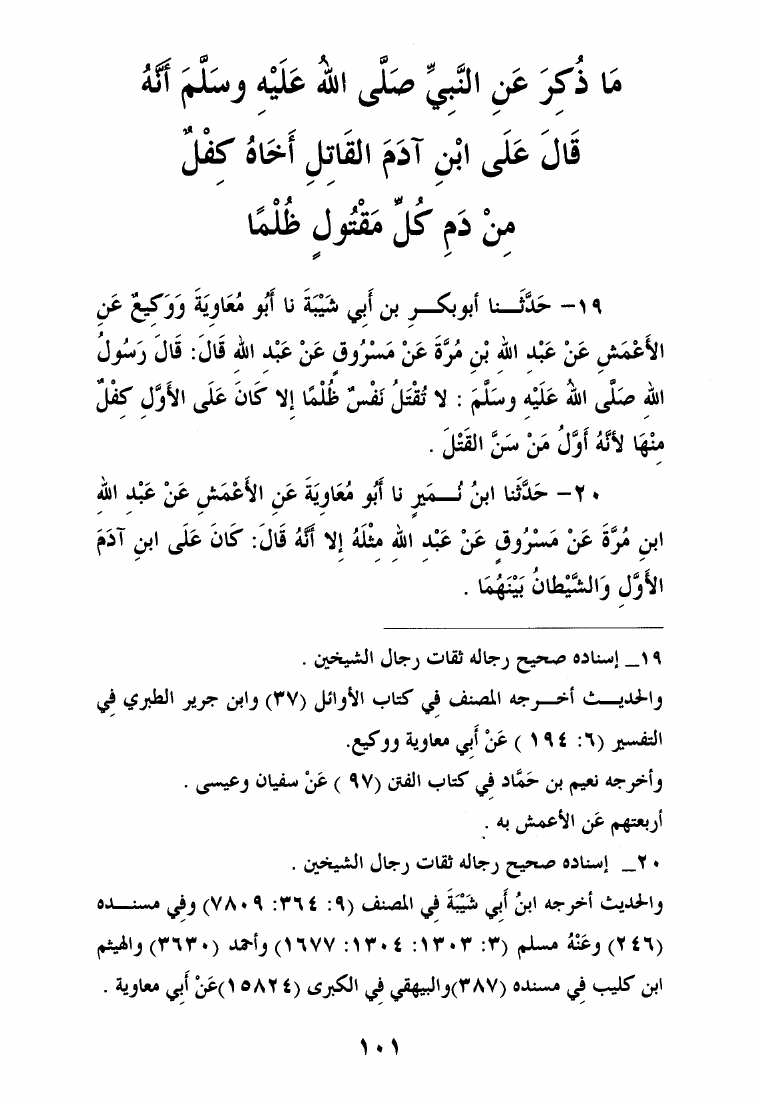 مَا ذُكِرَ عَنِ النَّبِيِّ صَلَّى اللهُ عَلَيْهِ وسَلَّمَ أَنَّهُ
قَالَ عَلَى ابْنِ آدَمَ القَاتِلِ أَخَاهُ كِفْلٌ
مِنْ دَمِ كُلِّ مَقْتُولٍ ظُلْمًا
١٩- حَدَّثَـــنا أبوبكـــرِ بن أَبِي شَيْبَةَ نا أَبُو مُعَاوِيَةَ وَوَكِيعٌ عَنِ
الأَعْمَشِ عَنْ عَبْدِ اللهِ بْنِ مُرَّةَ عَنْ مَسْرُوقٍ عَنْ عَبْدِ اللهِ قَالَ: قَالَ رَسُولُ
اللهِ صَلَّى اللهُ عَلَيْهِ وسَلَّمَ : لا تُقْتَلُ نَفْسٌ ظُلْمًا إِلا كَانَ عَلَى الأَوَّلِ كِفْلٌ
مِنْهَا لأَنَّهُ أَوَّلُ مَنْ سَنَّ القَتْلَ .
٢٠- حَدَّثَنا ابنُ نُـــمَيرٍ نا أَبُو مُعَاوِيَةَ عَنِ الأَعْمَشِ عَنْ عَبْدِ اللهِ
ابنِ مُرَّةَ عَنْ مَسْرُوقٍ عَنْ عَبْدِ اللهِ مِثْلَهُ إِلا أَنَّهُ قَالَ: كَانَ عَلَى ابنِ آدَمَ
الأَوَّلِ وَالشَّيْطَانُ بَيْنَهُمَا .
١٩_ إسناده صحيح رجاله ثقات رجال الشيخين .
والحديـــث أخـــرجه المصنف فِي كتاب الأوائل (٣٧) وابن جرير الطبري فِي
التفسير (٦: ١٩٤ ) عَنْ أَبِي معاوية ووكيع.
وأخرجه نعيم بن حَمَّاد فِي كتاب الفتن (٩٧ ) عَنْ سفيان وعيسى .
أربعتهم عَنِ الأعمش به .
٢٠_ إسناده صحيح رجاله ثقات رجال الشيخين .
والحديث أخرجه ابنُ أَبِي شَيْبَةَ فِي المصنف (٩: ٣٦٤: ٧٨٠٩) وفِي مسنـــده
(٢٤٦) وعَنْهُ مسلم (٣: ١٣٠٣: ١٣٠٤: ١٦٧٧) وأحمد (٣٦٣٠) والهيثم
ابن كليب فِي مسنده (٣٨٧)والبيهقي فِي الكبرى (١٥٨٢٤)عَنْ أَبِي معاوية .
١٠١